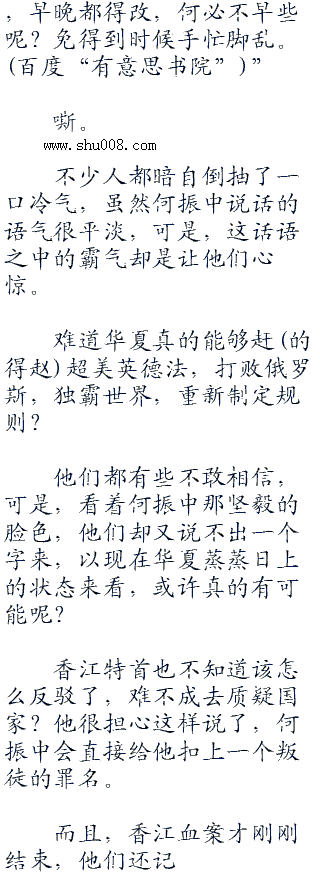 ，早晚都得改，何必不早些
呢？免得到时候手忙脚乱。
(百度“有意思书院”)”
嘶。
www.shu008.com
不少人都暗自倒抽了一
口冷气，虽然何振中说话的
语气很平淡，可是，这话语
之中的霸气却是让他们心
惊。
难道华夏真的能够赶(的
得赵)超美英德法，打败俄罗
斯，独霸世界，重新制定规
则？
他们都有些不敢相信，
可是，看着何振中那坚毅的
脸色，他们却又说不出一个
字来，以现在华夏蒸蒸日上
的状态来看，或许真的有可
能呢？
香江特首也不知道该怎
么反驳了，难不成去质疑国
家？他很担心这样说了，何
振中会直接给他扣上一个叛
徒的罪名。
而且，香江血案才刚刚
结束，他们还记